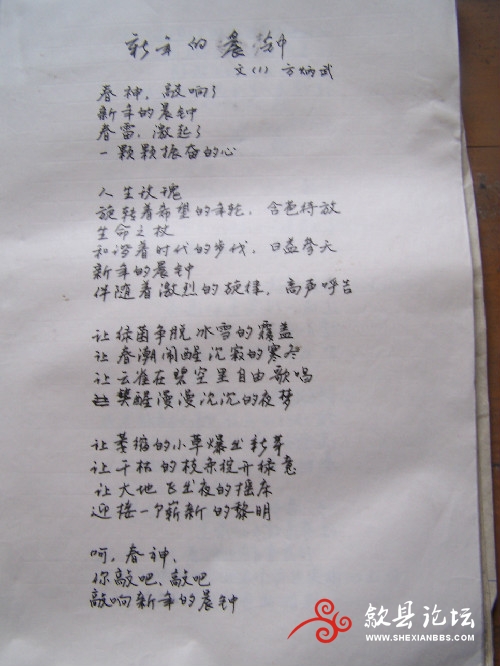 新年的晨钟
文(1) 方炳武
春神,敲响了
新年的晨钟
春雷,激起了
一颗颗振奋的心
人生玫瑰
旋转着希望的年轮,含苞待放
生命之杖
和谐着时代的步伐,日益擎天
新年的晨钟
伴随着激烈的旋律,高声呼吁
让绿茵争脱冰雪的覆盖
让春潮闹醒沉寂的寒冬
让云雀在碧空里自由歌唱
樊醒漫漫沉沉的夜梦
让萎缩的小草爆出新芽
让干枯的枝条绽开绿意
让大地飞出夜的摇床
迎接一个崭新的黎明
呵,春神、
你敲吧、敲吧
敲响新年的晨钟
歙县论坛
WWW.SHEXIANBBS.COM